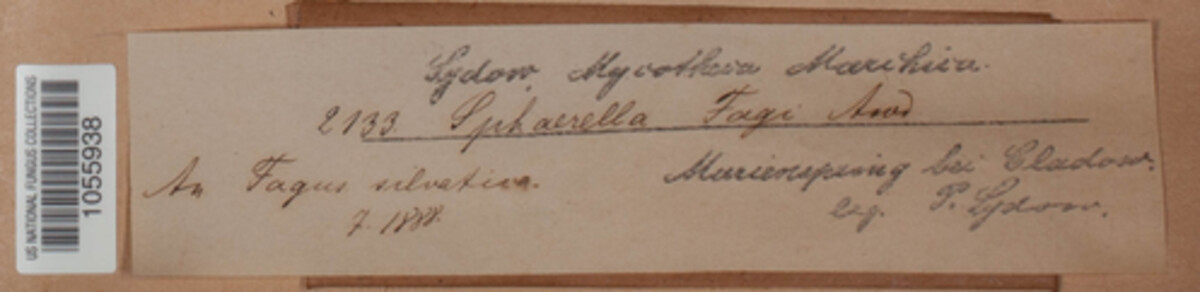 US NATIONAL FUNGUS COLLECTIONS
1055938
Sydow, Mycotheca Marchica.
2133. Sphaerella Fagi Awd
An Fagus silvatica.
7. 1888.
Marienspring bei Cladow.
leg. P. Sydow.